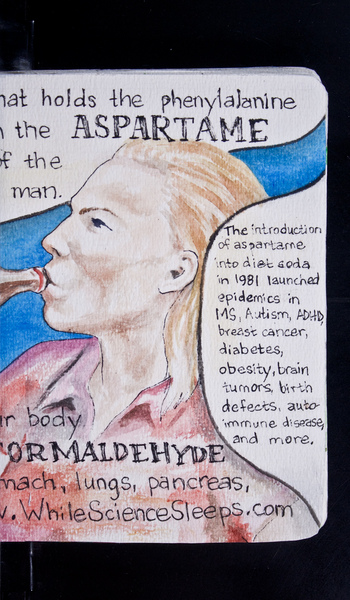 hat holds the phenylalanine
n the ASPARTAME
of the
man.
The introduction
of aspartame
into diet soda
in 1981 launched
epidemics in
MS, Autism, ADHD,
breast cancer,
diabetes,
obesity, brain
tumors, birth
defects, auto-
immune disease,
and more.
ur body
ORMALDEHYDE
mach, lungs, pancreas,
w.WhileScienceSleeps.com